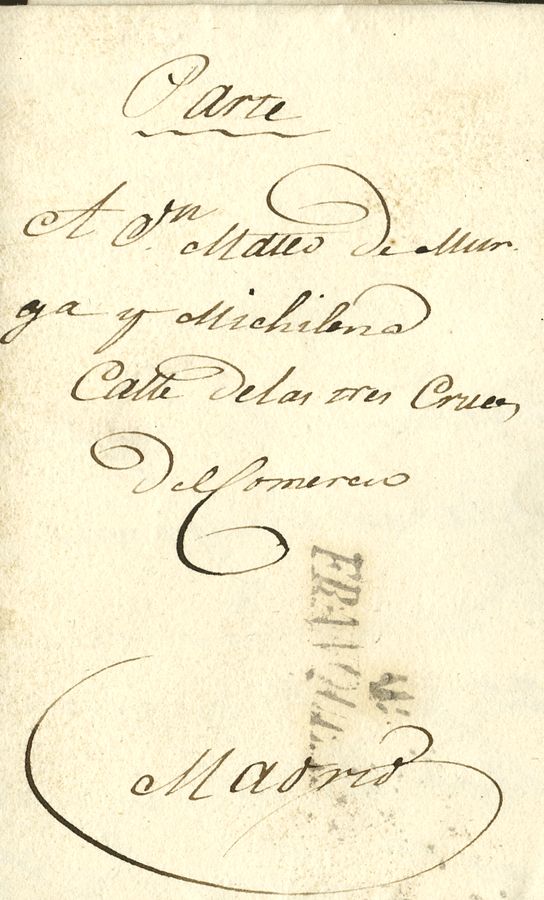 Parte
A Dn Mateo de Mur
ga y Michilena
Calle de las tres Cruces
Del Comercio
FRANQUE
Madrid